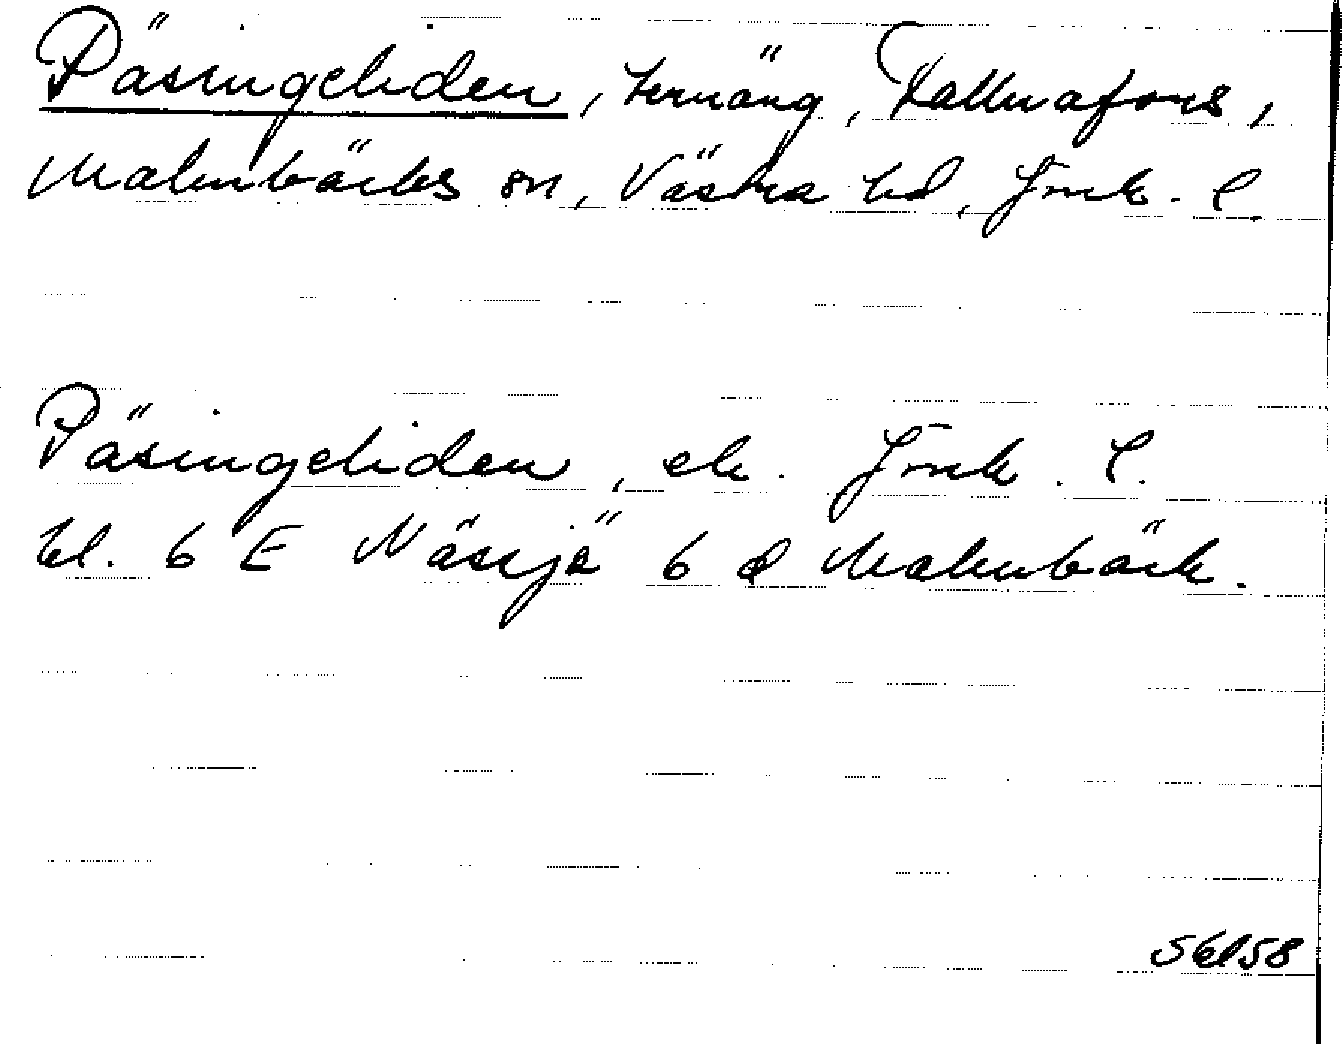 Päsingeliden, terräng, Hallnafors,
Malmbäcks sn, Västra hd, Jönk. l.
Päsingeliden, ek. Jönk. l.
bl. 6 E Nässjö 6 d Malmbäck.